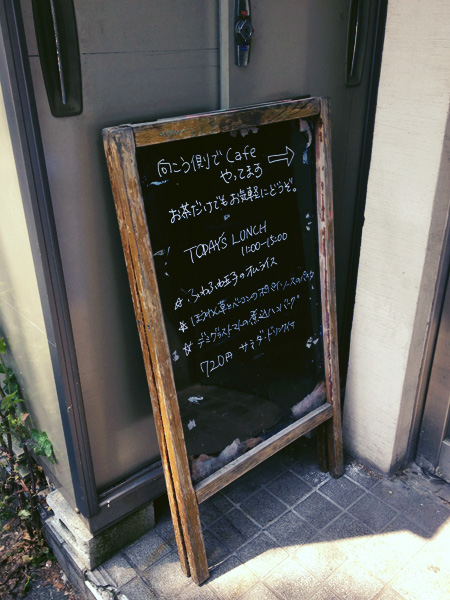 向こう側でCafe
やってます
お茶だけでもお気軽にどうぞ。
TODAY'S LUNCH
11:00-15:00
☆ふわふわ玉子のオムライス
☆ほうれん草とベーコンの
☆デミグラストマトの煮込ハンバーグ
720円 サラダ・ドリンク付